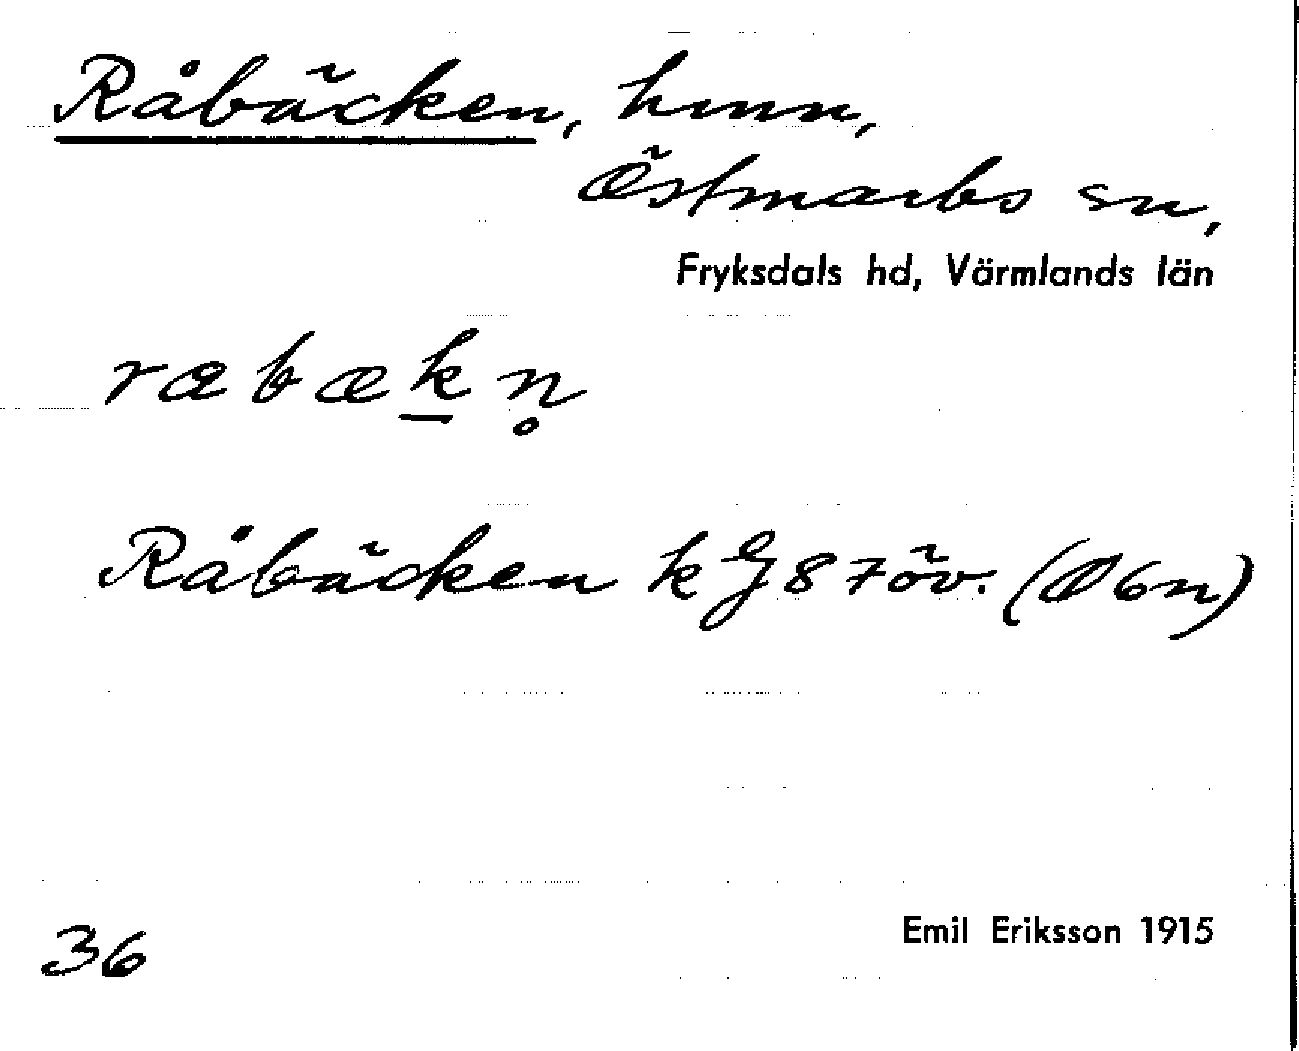 Råbäcken, hmn,
Östmarks sn,
Fryksdals hd, Värmlands län
ræbækn̥
Råbäcken kG 87 öv. (Ö6n)
36
Emil Eriksson 1915